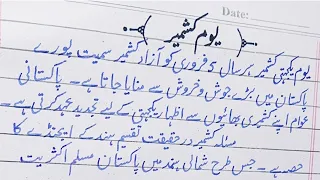 Date:
یوم کشمیر
یوم یکجہتی کشمیر ہر سال 5 فروری کو آزاد کشمیر سمیت پورے
پاکستان میں بڑے جوش و خروش سے منایا جاتا ہے۔ پاکستانی
عوام اپنے کشمیری بھائیوں سے اظہار یکجہتی کے لیے تجدید عہد کرتی ہے۔
مسئلہ کشمیر درحقیقت تقسیم ہند کے ایجنڈے کا
حصہ ہے۔ جس طرح شمالی ہند میں پاکستان مسلم اکثریت